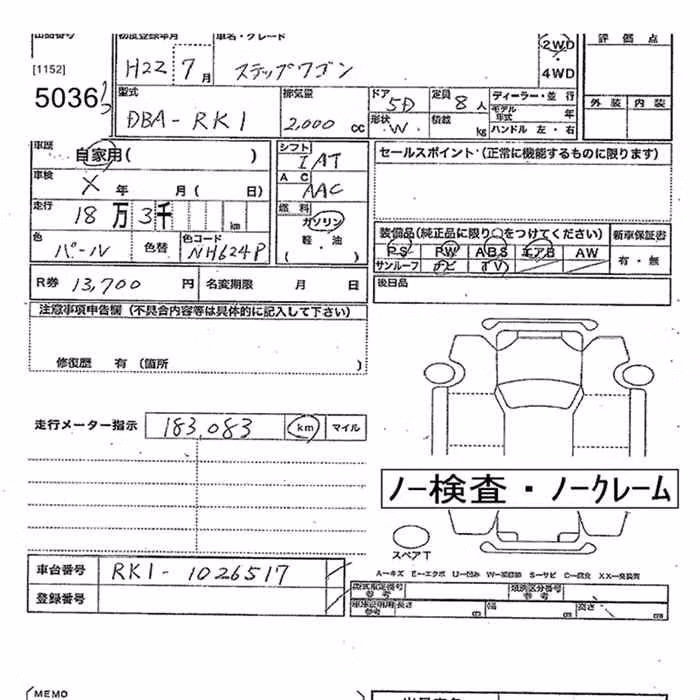 出品番号 初度登録年月 車名・グレード 評価点
[1152] H22 7月 ステップワゴン 2WD・4WD
5036
外装 内装
型式 排気量 ドア 定員 ディーラー・並行
DBA-RK1 2,000 cc 5D 8人 モデル年式 年
形状 W. 積載 kg ハンドル 左・右
車歴 自家用( ) シフト IAT セールスポイント(正常に機能するものに限ります)
車検 X 年 月( 日) AC AAC
走行 18万3千 km 燃料 ガソリン 軽・油 ( )
装備品(純正品に限り○をつけてください) 新車保証書
色 パール 色替 色コード NH624P
PS PW ABS エアB AW 有・無
サンルーフ ナビ TV
R券 13,700 円 名変期限 月 日 後日品
注意事項申告欄(不具合内容等は具体的に記入して下さい)
修復歴 有(箇所 )
走行メーター指示 183,083 km マイル
ノー検査・ノークレーム
スペアT
車台番号 RK1-1026517
A-キズ E-エクボ U-凹み W-補修跡 S-サビ C-腐食 XX-交換済
登録番号
型式指定番号 参考 類別区分番号 参考
車庫証明用 参考 長さ cm 幅 cm 高さ cm
MEMO